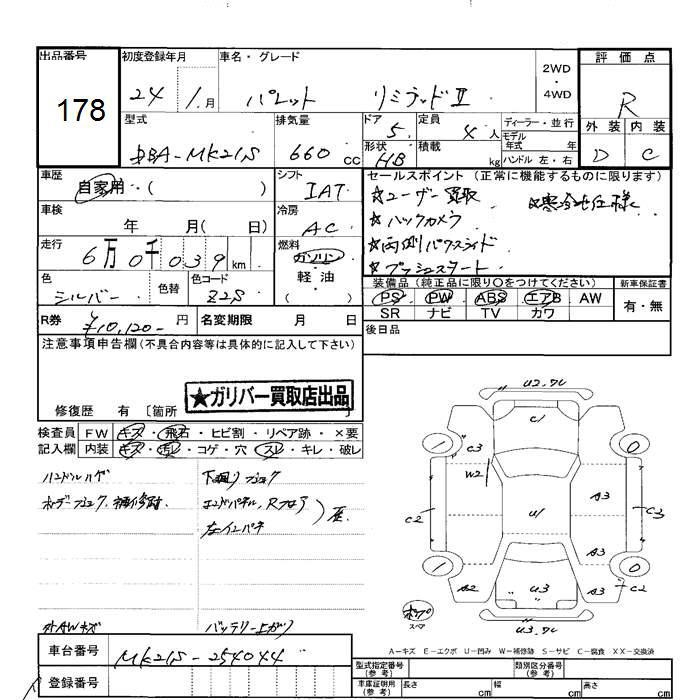 出品番号 初度登録年月 車名・グレード 評価点
178 24年 1月 パレット リミテッドⅡ 2WD・4WD R
型式 排気量 ドア 5 定員 4人 ディーラー・並行 外装 内装
DBA-MK21S 660cc 形状 HB 積載 kg モデル年式 年 D C
ハンドル 左・右
車歴 シフト セールスポイント (正常に機能するものに限ります)
自家用・( ) IAT ☆ユーザー買取 ☆寒冷地仕様
車検 冷房 ☆バックカメラ
年 月( 日) AC ☆両側パワースライド
走行 燃料 ☆プッシュスタート
6万0千039km ガソリン・軽油・( )
色 色替 色コード 装備品(純正品に限り○をつけてください) 新車保証書
シルバー Z2S PS PW ABS エアB AW 有・無
SR ナビ TV カワ
R券 ¥10,120-円 名変期限 月 日 後日品
注意事項申告欄(不具合内容等は具体的に記入して下さい)
★ガリバー買取店出品
修復歴 有 〔箇所 〕
検査員 FW キズ・飛石・ヒビ割・リペア跡・×要
記入欄 内装 キズ・汚レ・コゲ・穴・スレ・キレ・破レ
ハンドルハゲ 下廻りブラック
ボデーフラック、補修跡 エンドパネル、Rフロア
左インパネ
外AWキズ バッテリー上がり
車台番号 MK21S-254044
登録番号
U2.フレ
C1
C3
W2
C2 U1 A3 C3
A3
A2 U3 A3 C2
U3.フレ
スペア
A=キズ E=エクボ U=凹み W=補修跡 S=サビ C=腐食 XX=交換済
型式指定番号(参考) 類別区分番号(参考)
車庫証明用(参考) 長さ cm 幅 cm 高さ cm